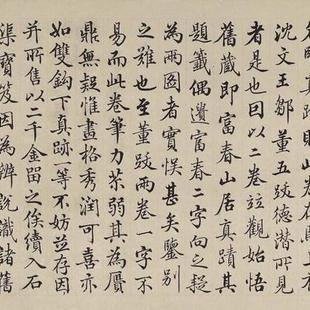 沈文王鄒董五跋德潛所見
者是也因以二卷並觀始悟
舊藏即富春山居真蹟其
題籤偶遺富春二字向之疑
為兩圖者實悞甚矣鑒別
之難也至董跋兩卷一字不
易而此卷筆力苶弱其為贗
鼎無疑惟畫格秀潤可喜亦
如雙鉤下真跡一等不妨並存因
并所售以二千金留之俟續入石
渠寶笈因為辨說識諸舊